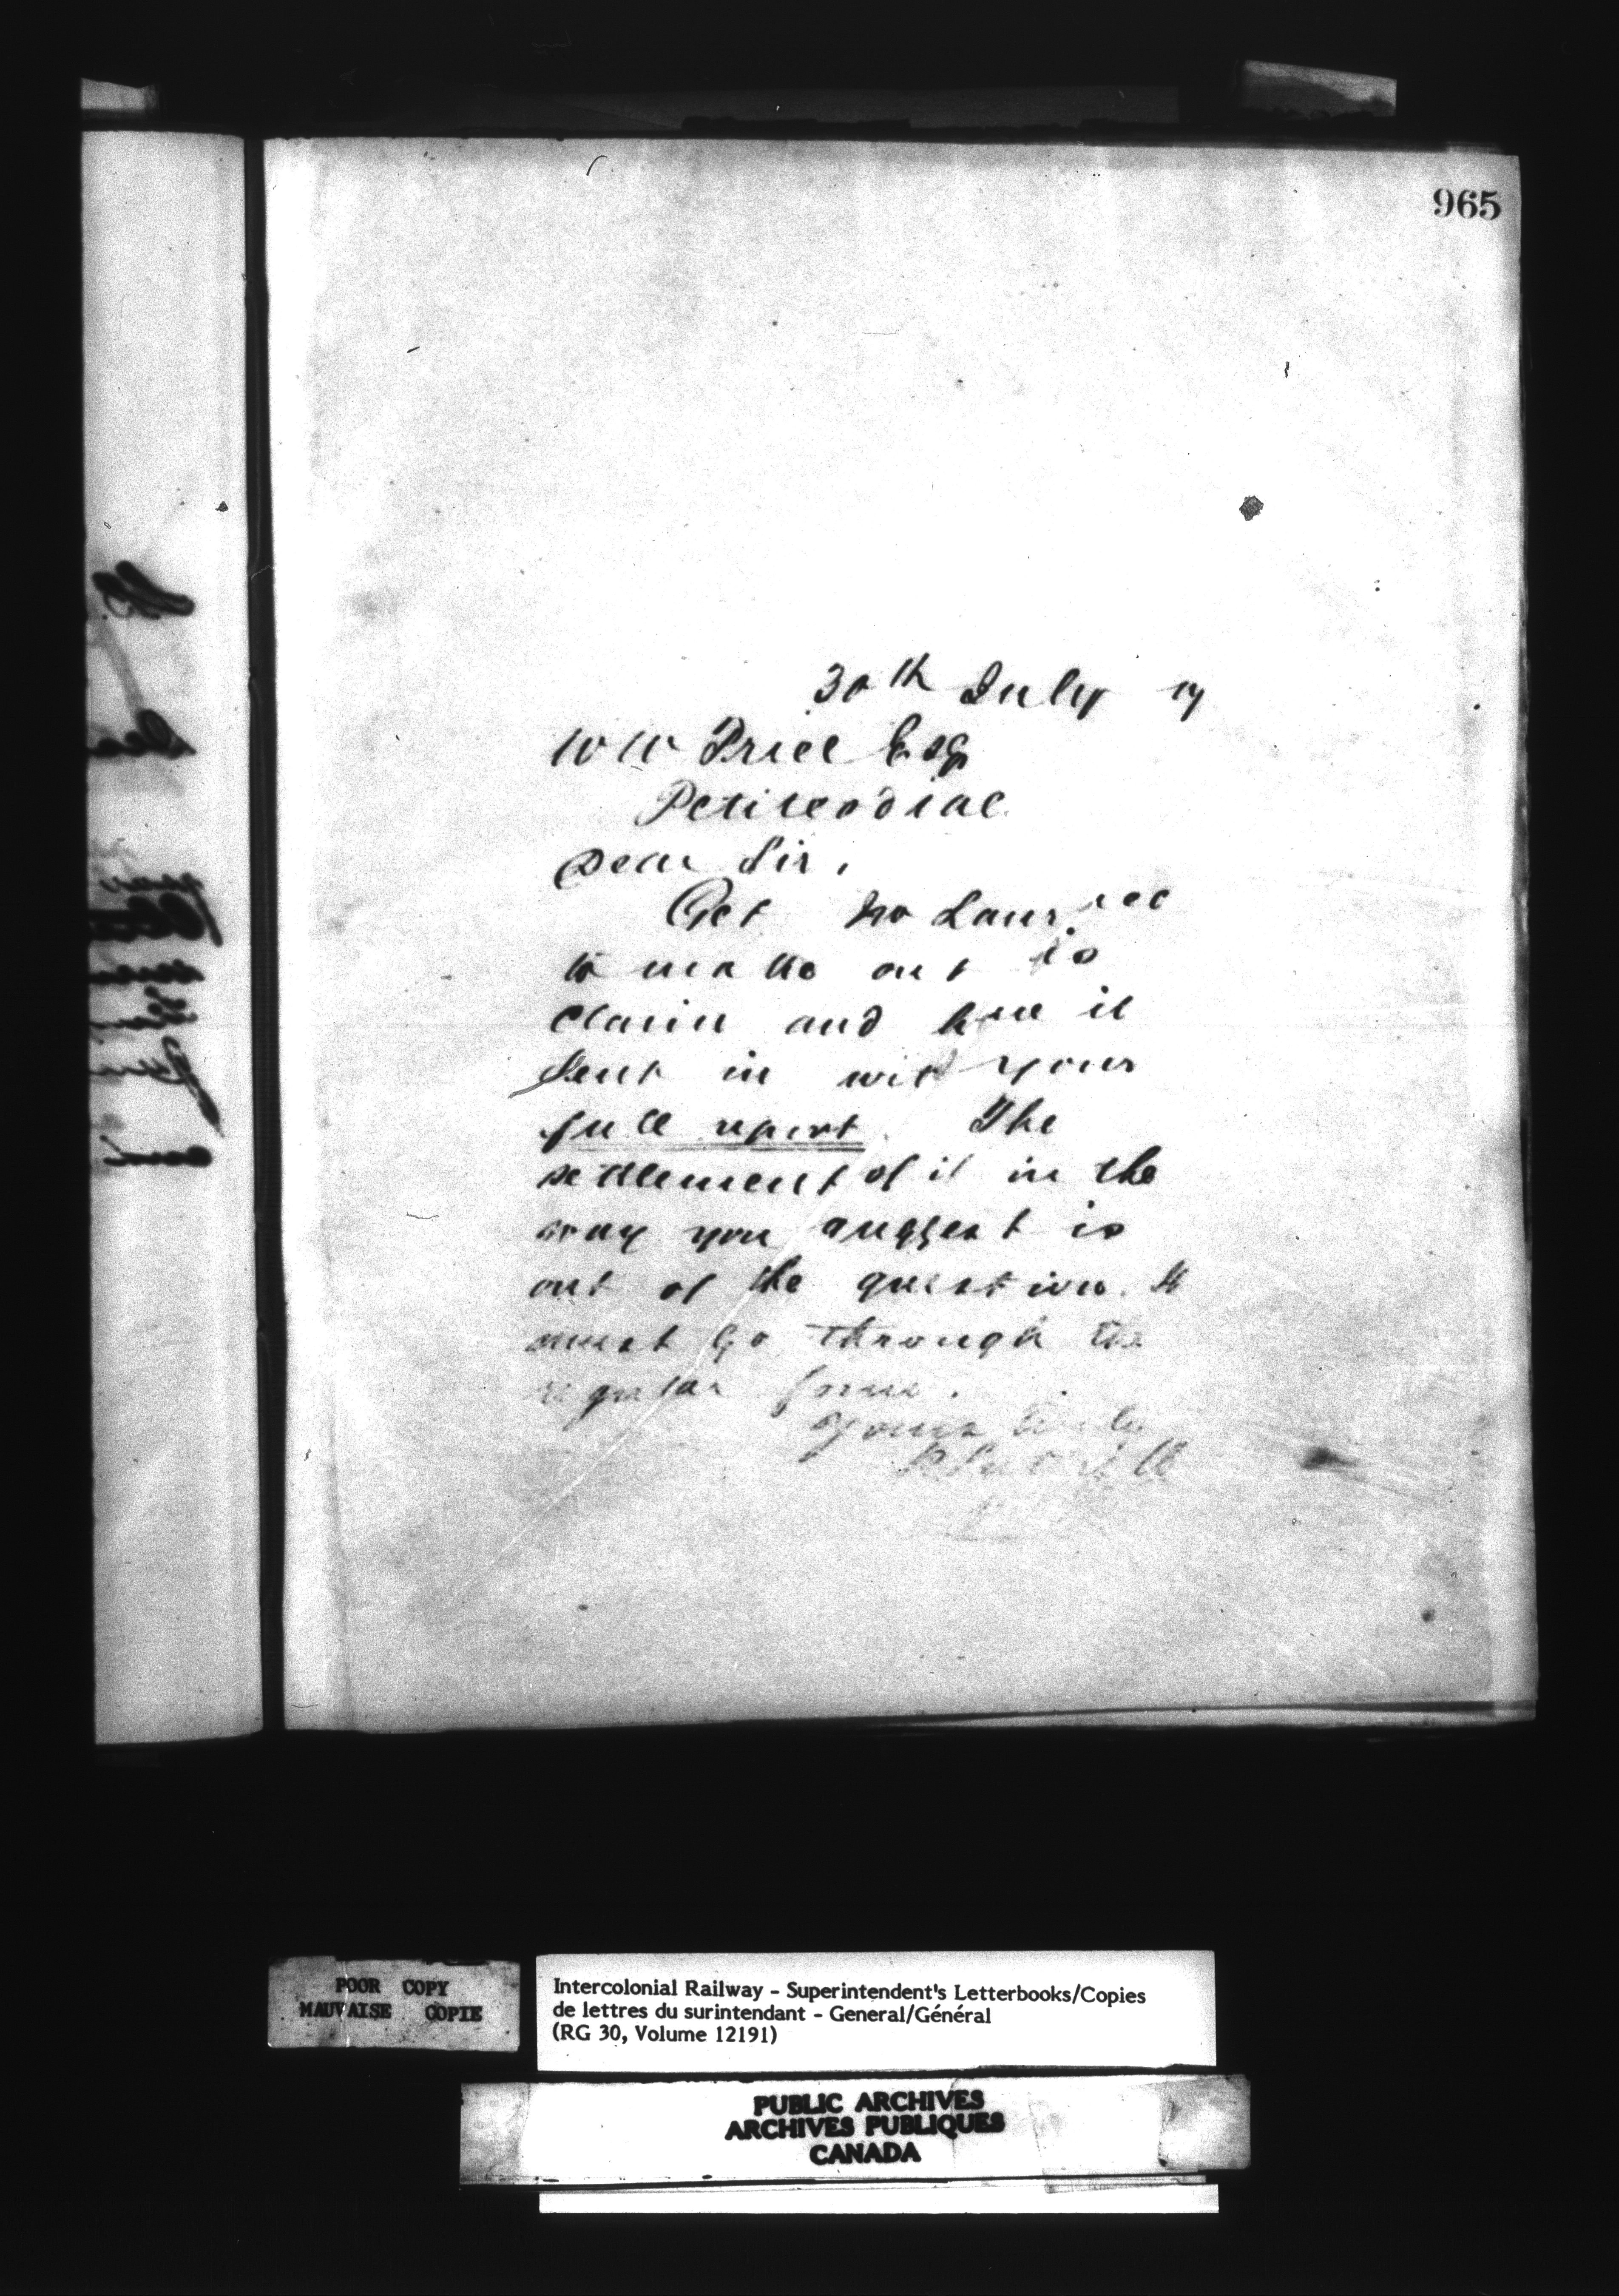 965
30th July
W W Price Esq
Petitcodiac
Dear Sir,
Get
to make out
claim and have it
sent in with your
full report. The
settlement of it in the
way you suggest is
out of the question. It
must go through the
regular form.
Yours truly
POOR COPY
MAUVAISE COPIE
Intercolonial Railway - Superintendent's Letterbooks/Copies
de lettres du surintendant - General/Général
(RG 30, Volume 12191)
PUBLIC ARCHIVES
ARCHIVES PUBLIQUES
CANADA